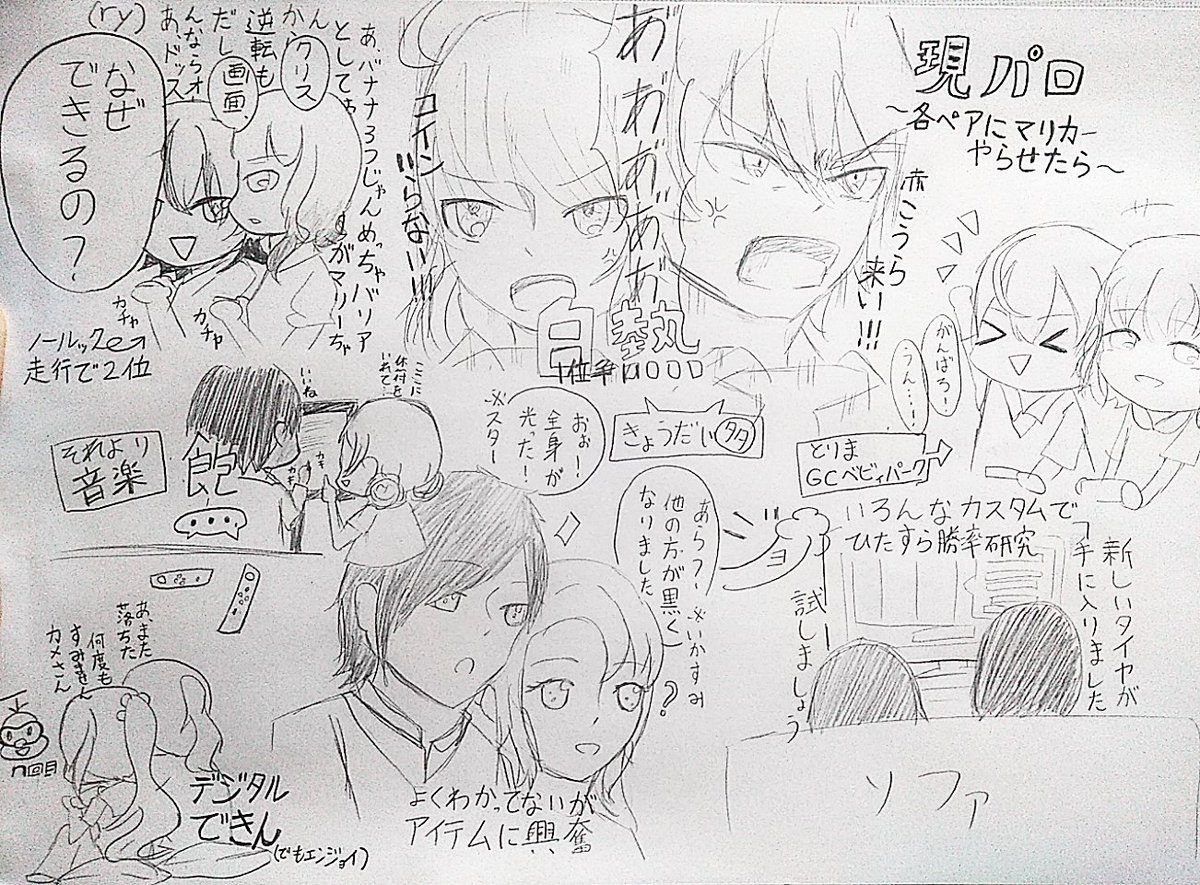 現パロ
~各ペアにマリカー
やらせたら~
赤こうら
来い!!!
あ゛あ゛あ゛あ゛あ゛あ゛
コイン
いらない!!!!
白熱
1位争い
あ、バナナ3つじゃんめっちゃバリア
としてゎ
クリス
逆転も
だし
画面、
あ、ドッス
(ry)
なぜ
できるの?
ガチャ
ガチャ
ノールック
走行で2位
がんばろー!
うん…!
とりま
GCベビィパーク
きょうだい
タタ
ここに
休符を
いれて…
いいね
カキ
カキ
それより
音楽
飽
…
おぉー!
全身が
光った!
※スター
あら?
他の方が黒く
なりました
※いかすみ
?
よくわかってないが
アイテムに興奮
いろんなカスタムで
ひたすら勝率研究
新しいタイヤが
手に入りました
試しましょう
ソファ
あ、また
落ちた
何度も
すみません
カメさん
n回目
デジタル
できん
(でもエンジョイ)